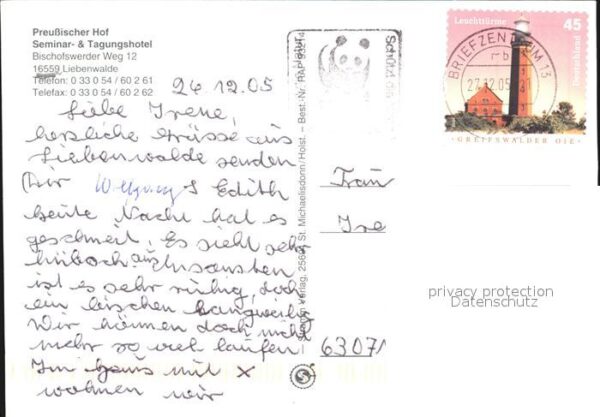 Preußischer Hof
Seminar- & Tagungshotel
Bischofswerder Weg 12
16559 Liebenwalde
Telefon: 0 33 0 54 / 60 2 61
Telefax: 0 33 0 54 / 60 2 62
26 12.05
Liebe Irene,
herzliche Grüsse aus
Liebenwalde senden
Dir Wolfgang & Edith
heute Nacht hat es
geschneit. Es sieht sehr
hübsch aus. Ansonsten
ist es sehr ruhig, doch
ein bischen langweilig
Wir können doch nicht
mehr so viel laufen
Im Haus mit x
wohnen wir
Verlag, 25693 St. Michaelisdonn/Holst. – Best.-Nr.
Schützt die
Natur
Leuchttürme
45
Deutschland
GREIFSWALDER OIE
BRIEFZENTRUM 15
27.12.05
Frau
Ire
63071
privacy protection
Datenschutz